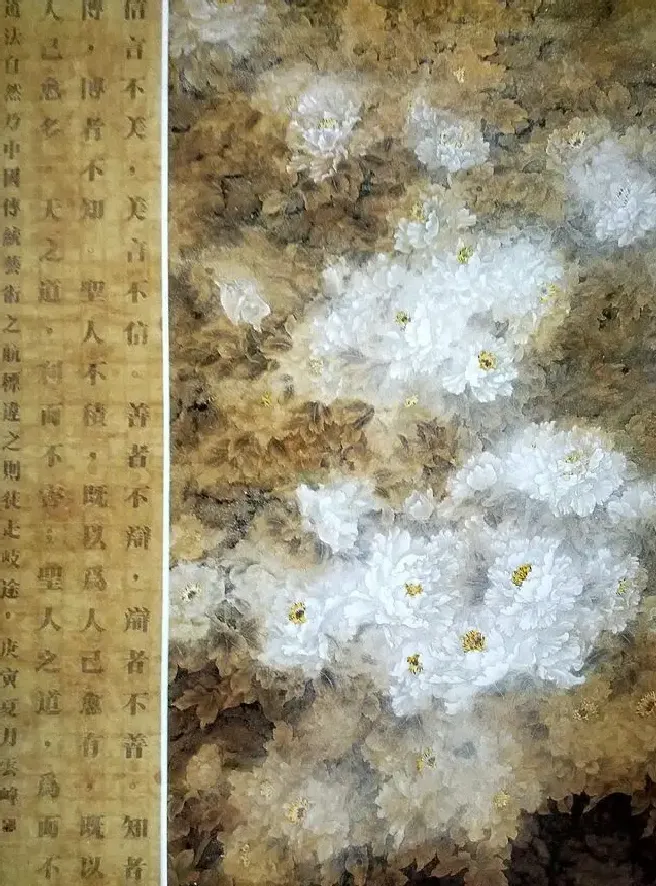 信言不美，美言不信。善者不辯，辯者不善。知者
博，博者不知。聖人不積，既以爲人己愈有，既以
人己愈多。天之道，利而不害；聖人之道，爲而不
道法自然乃中國傳統藝術之航標違之則徒走岐途，庚寅夏月雲